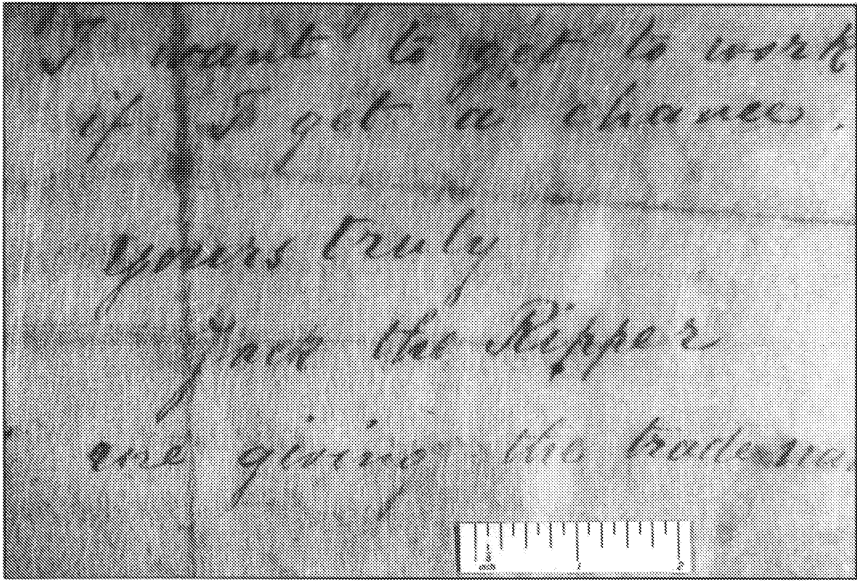 I want to get to work
if I get a chance.
yours truly
Jack the Ripper
giving the trade
inch 1 2